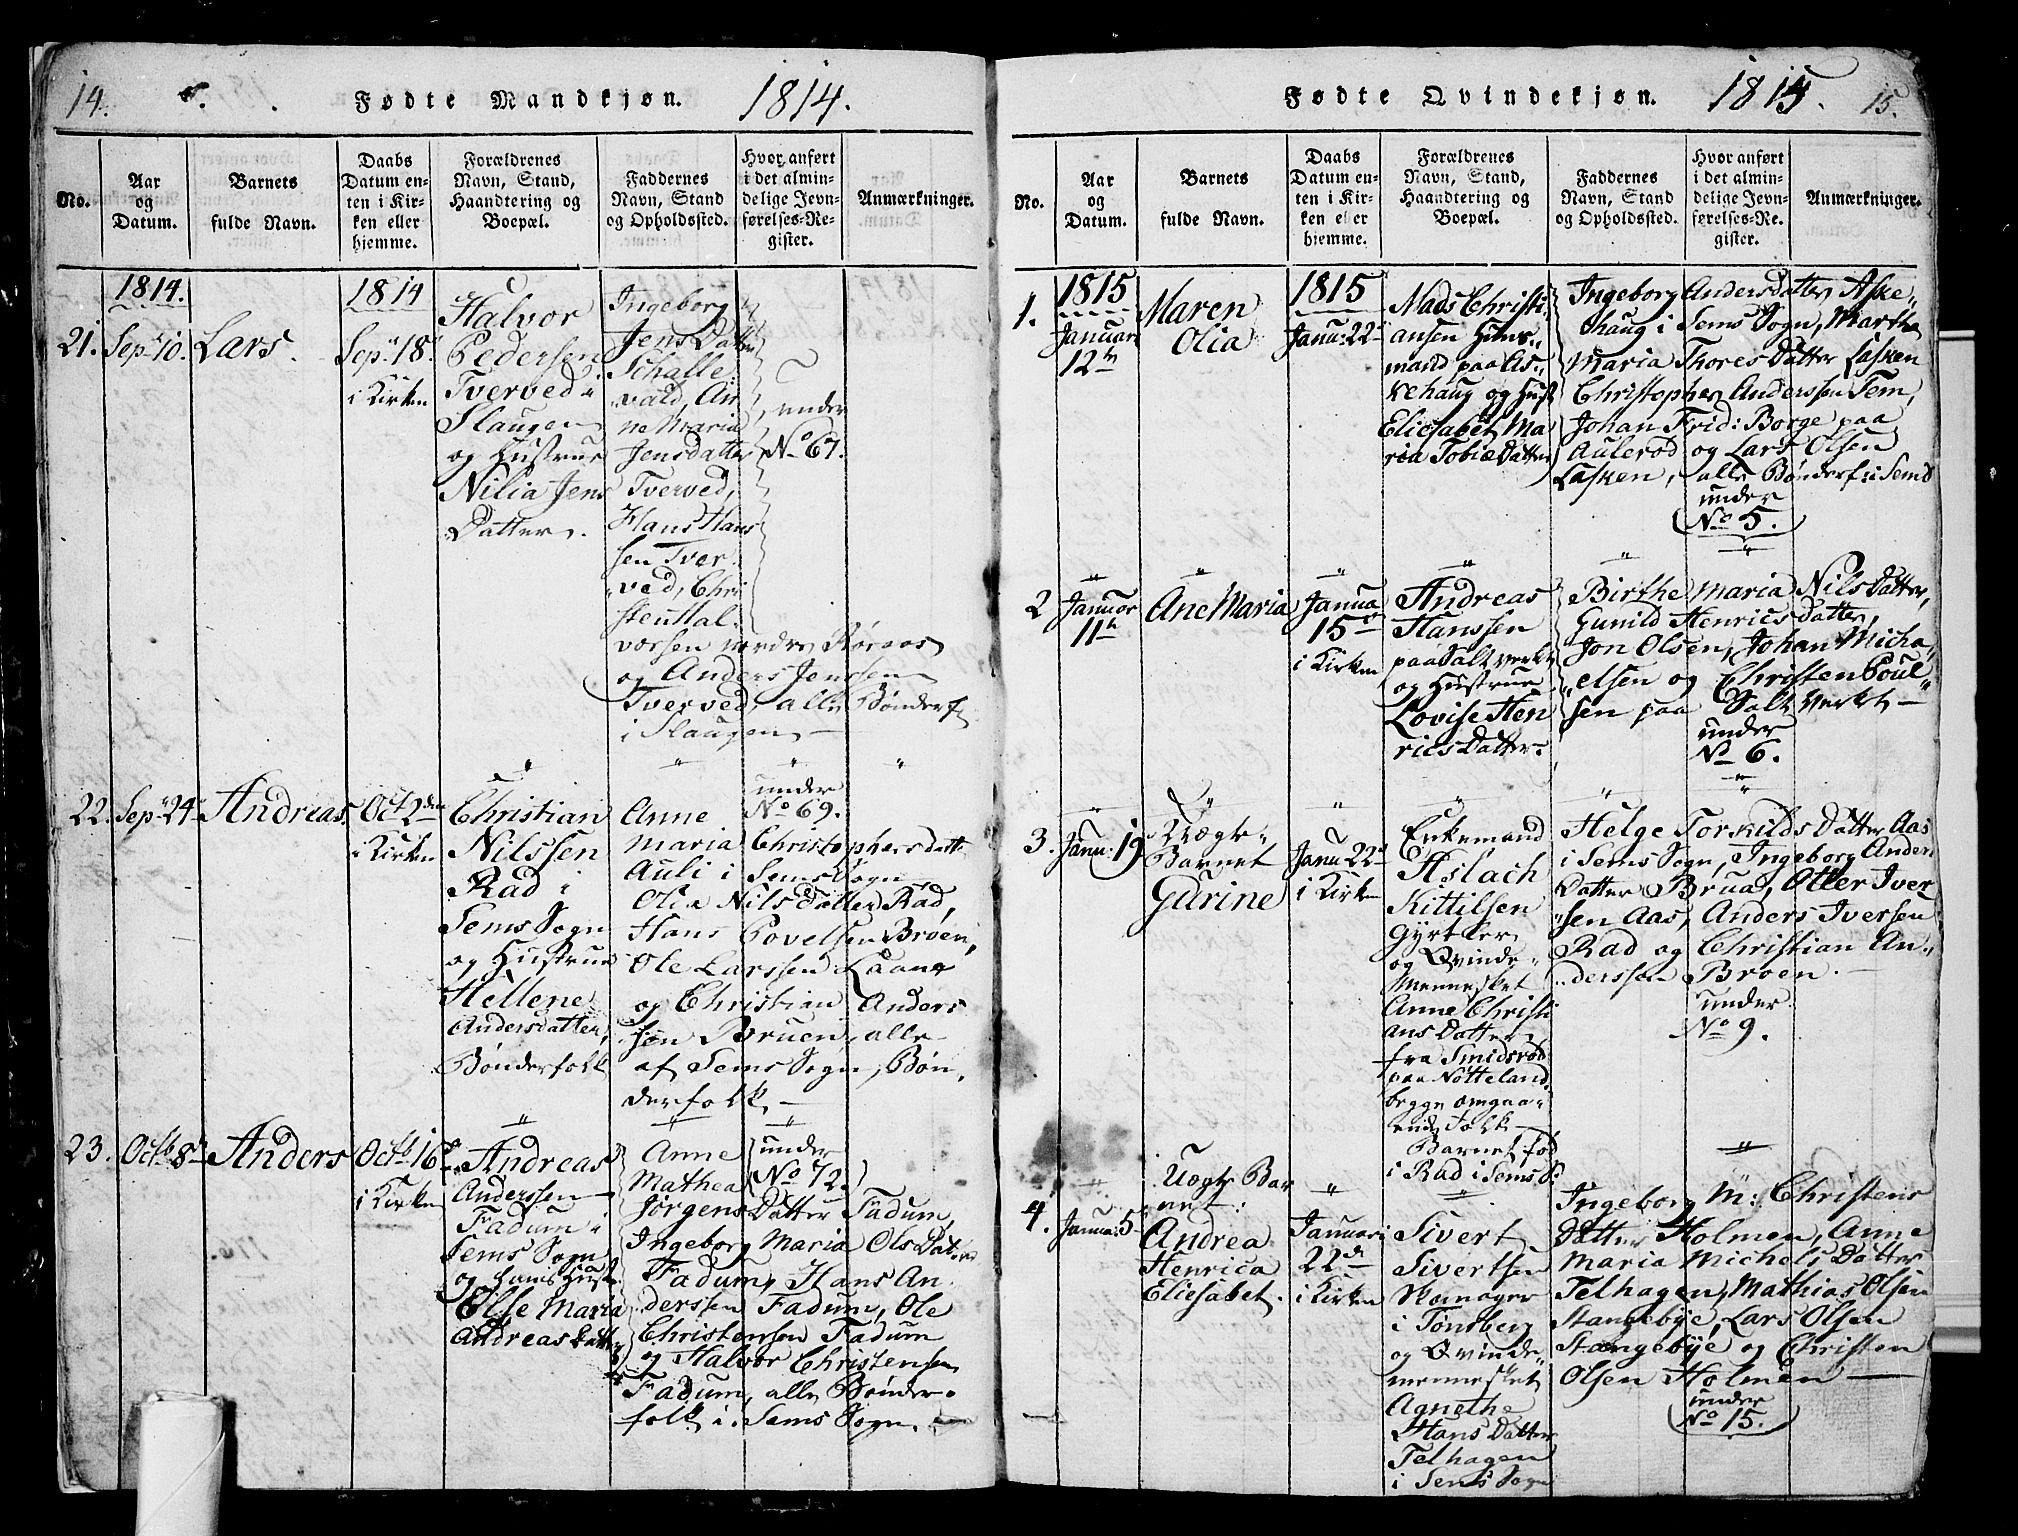 14.
Fødte Mandkjøn.
1814.
No.
Aar
og
Datum.
Barnets
fulde Navn.
Daabs
Datum en-
ten i Kir-
ken eller
hjemme.
Forældrenes
Navn, Stand,
Haandtering og
Boepæl.
Faddernes
Navn, Stand
og Opholdssted.
Hvor anført
i det almin-
delige Jevn-
førelses-Re-
gister.
Anmærkninger.
1814.
21. Sepr 10.
Lars.
1814
Sepr 18
i Kirken
Halvor
Pedersen
Tverved i
Slaugen
og Hustrue
Nilia Jens
Datter.
Ingeborg
Jens Datter
Schalle
vald, An
ne Maria
Jensdatter
Tverved,
Hans Hans
sen Tver
ved, Chri
sten Hal.
vorsen nordre Røraas
og Anders Jenssen
Tverved, alle Bønderf
i Slaugen
under
No 67.
22. Sepr 24
Andreas.
Oct 2den
i Kirken
Christian
Nilssen
Rad i
Sems Sogn
og Hustrue
Hellene
Andersdatter,
Bønderfolk
Anne
Maria Christophersdatt
Auli i Sems Sogn
Olia Nils Datter Rad,
Hans Povelsen Broen,
Ole Larssen Laane
og Christian Anders
søn Bruen, alle
af Sems Sogn, Bøn
derfolk
under
No 69.
23. Octb 8
Anders
Octb 16
i Kirken
Andreas
Anderssen
Fadum i
Sems Sogn
og hans Hust.
Else Maria
Andreas Datter
Anne
Mathea
Jørgens Datter Fadum,
Ingeborg Maria Ols Datter
Fadum, Hans An
derssen Fadum, Ole
Christenssen Fadum
og Halvor Christensen
Fadum, alle Bønder
folk i Sems Sogn.
under
No 72.
Fødte Qvindekjøn.
1815.
15.
No.
Aar
og
Datum.
Barnets
fulde Navn.
Daabs
Datum en-
ten i Kir-
ken eller
hjemme.
Forældrenes
Navn, Stand,
Haandtering og
Boepæl.
Faddernes
Navn, Stand
og Opholdssted.
Hvor anført
i det almin-
delige Jevn-
førelses-Re-
gister.
Anmærkninger.
1.
1815
Januari
12te
Maren
Olia
1815
Janu: 22
Mads Christi
ansen Huus
mand paa As
kehaug og Hust
Eliesabet Ma
ria Tobiæ Datter
Ingeborg Anders Datter Aske
haug i Sems Sogn, Marthe
Maria Thores Datter Lasken
Christopher Anderssen Sem,
Johan Frid: Borge paa
Aulerød og Lars Olsen
Lasken, alle Bønderf: i Sems
under
No 5.
2
Januar
11te
Ane Maria
Janua
15
i Kirken
Andreas
Hanssen
paa Saltverket
og Hustrue
Lovise Hen
rics Datter
Birthe Maria Nils Datter,
Gunild Henrics Datter,
Jon Olsen, Johan Micha
elsen og Christen Poul
sen paa Salt Verket
under
No 6.
3. Janu: 19
Uægte
Barnet
Gurine
Janu 22
i Kirken
Enkemand
Aslach
Kittilsen
Gyrtler
og Qvinde
Mennesket
Anne Christi
ans Datter
fra Smidsrød
paa Nøtteland
begge omgaa
ende Folk
Barnet fød
i Rad i Sems S:
Helge Torkilds Datter Aas
i Sems Sogn, Ingeborg Anders
Datter Brua, Otter Iver
sen Aas, Anders Iversen
Rad og Christian An
derssen Broen.
under
No 9.
4. Janua: 5
Uægte Bar
net:
Andrea
Henrica
Eliesabet.
Januari
22d
i Kirken
Sivert
Sivertsen
Skomager
i Tønsberg
og Qvinde
mennesket
Agnethe
Hans Datter
Telhagen
i Sems Sogn
Ingeborg M: Christens
Datter Holmen, Anne
Maria Michels Datter
Telhagen, Mathias Olsen
Stangebye, Lars Olsen
Stangebye og Christen
Olsen Holmen
under
No 15.